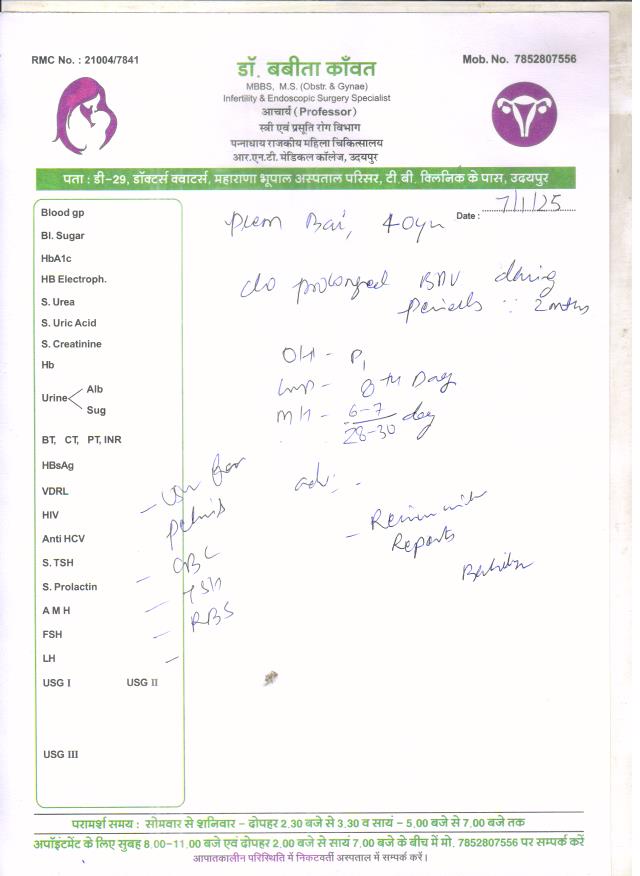 RMC No. : 21004/7841
Mob. No. 7852807556
डॉ. बबीता काँवत
MBBS, M.S. (Obstr. & Gynae)
Infertility & Endoscopic Surgery Specialist
आचार्य (Professor)
स्त्री एवं प्रसूति रोग विभाग
पन्नाधाय राजकीय महिला चिकित्सालय
आर.एन.टी. मेडिकल कॉलेज, उदयपुर
पता : डी-29, डॉक्टर्स क्वाटर्स, महाराणा भूपाल अस्पताल परिसर, टी.बी. क्लिनिक के पास, उदयपुर
Date : 7/1/25
Prem Bai, 40yr
c/o prolonged during
periods
OH - P1
LMP - 8th Day
MH - 6-7 day
28-30
adv -
Review with
Reports
USG for
pelvis
CBC
TSH
RBS
Blood gp
Bl. Sugar
HbA1c
HB Electroph.
S. Urea
S. Uric Acid
S. Creatinine
Hb
Urine Alb
Sug
BT, CT, PT, INR
HBsAg
VDRL
HIV
Anti HCV
S. TSH
S. Prolactin
A M H
FSH
LH
USG I USG II
USG III
परामर्श समय : सोमवार से शनिवार – दोपहर 2.30 बजे से 3.30 व सायं – 5.00 बजे से 7.00 बजे तक
अपॉइंटमेंट के लिए सुबह 8.00-11.00 बजे एवं दोपहर 2.00 बजे से सायं 7.00 बजे के बीच में मो. 7852807556 पर सम्पर्क करें
आपातकालीन परिस्थिति में निकटवर्ती अस्पताल में सम्पर्क करें।